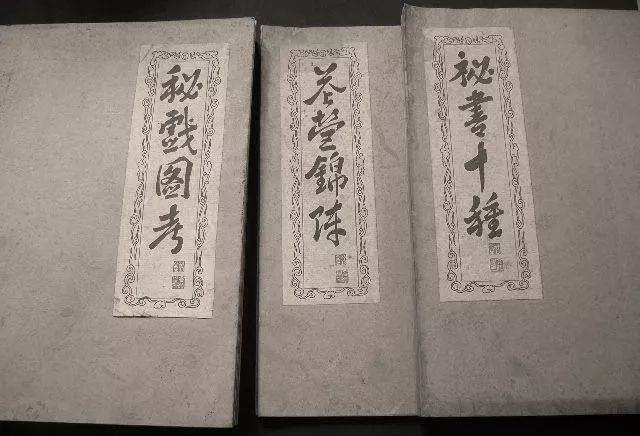 秘戲圖考
花營錦陣
祕書十種